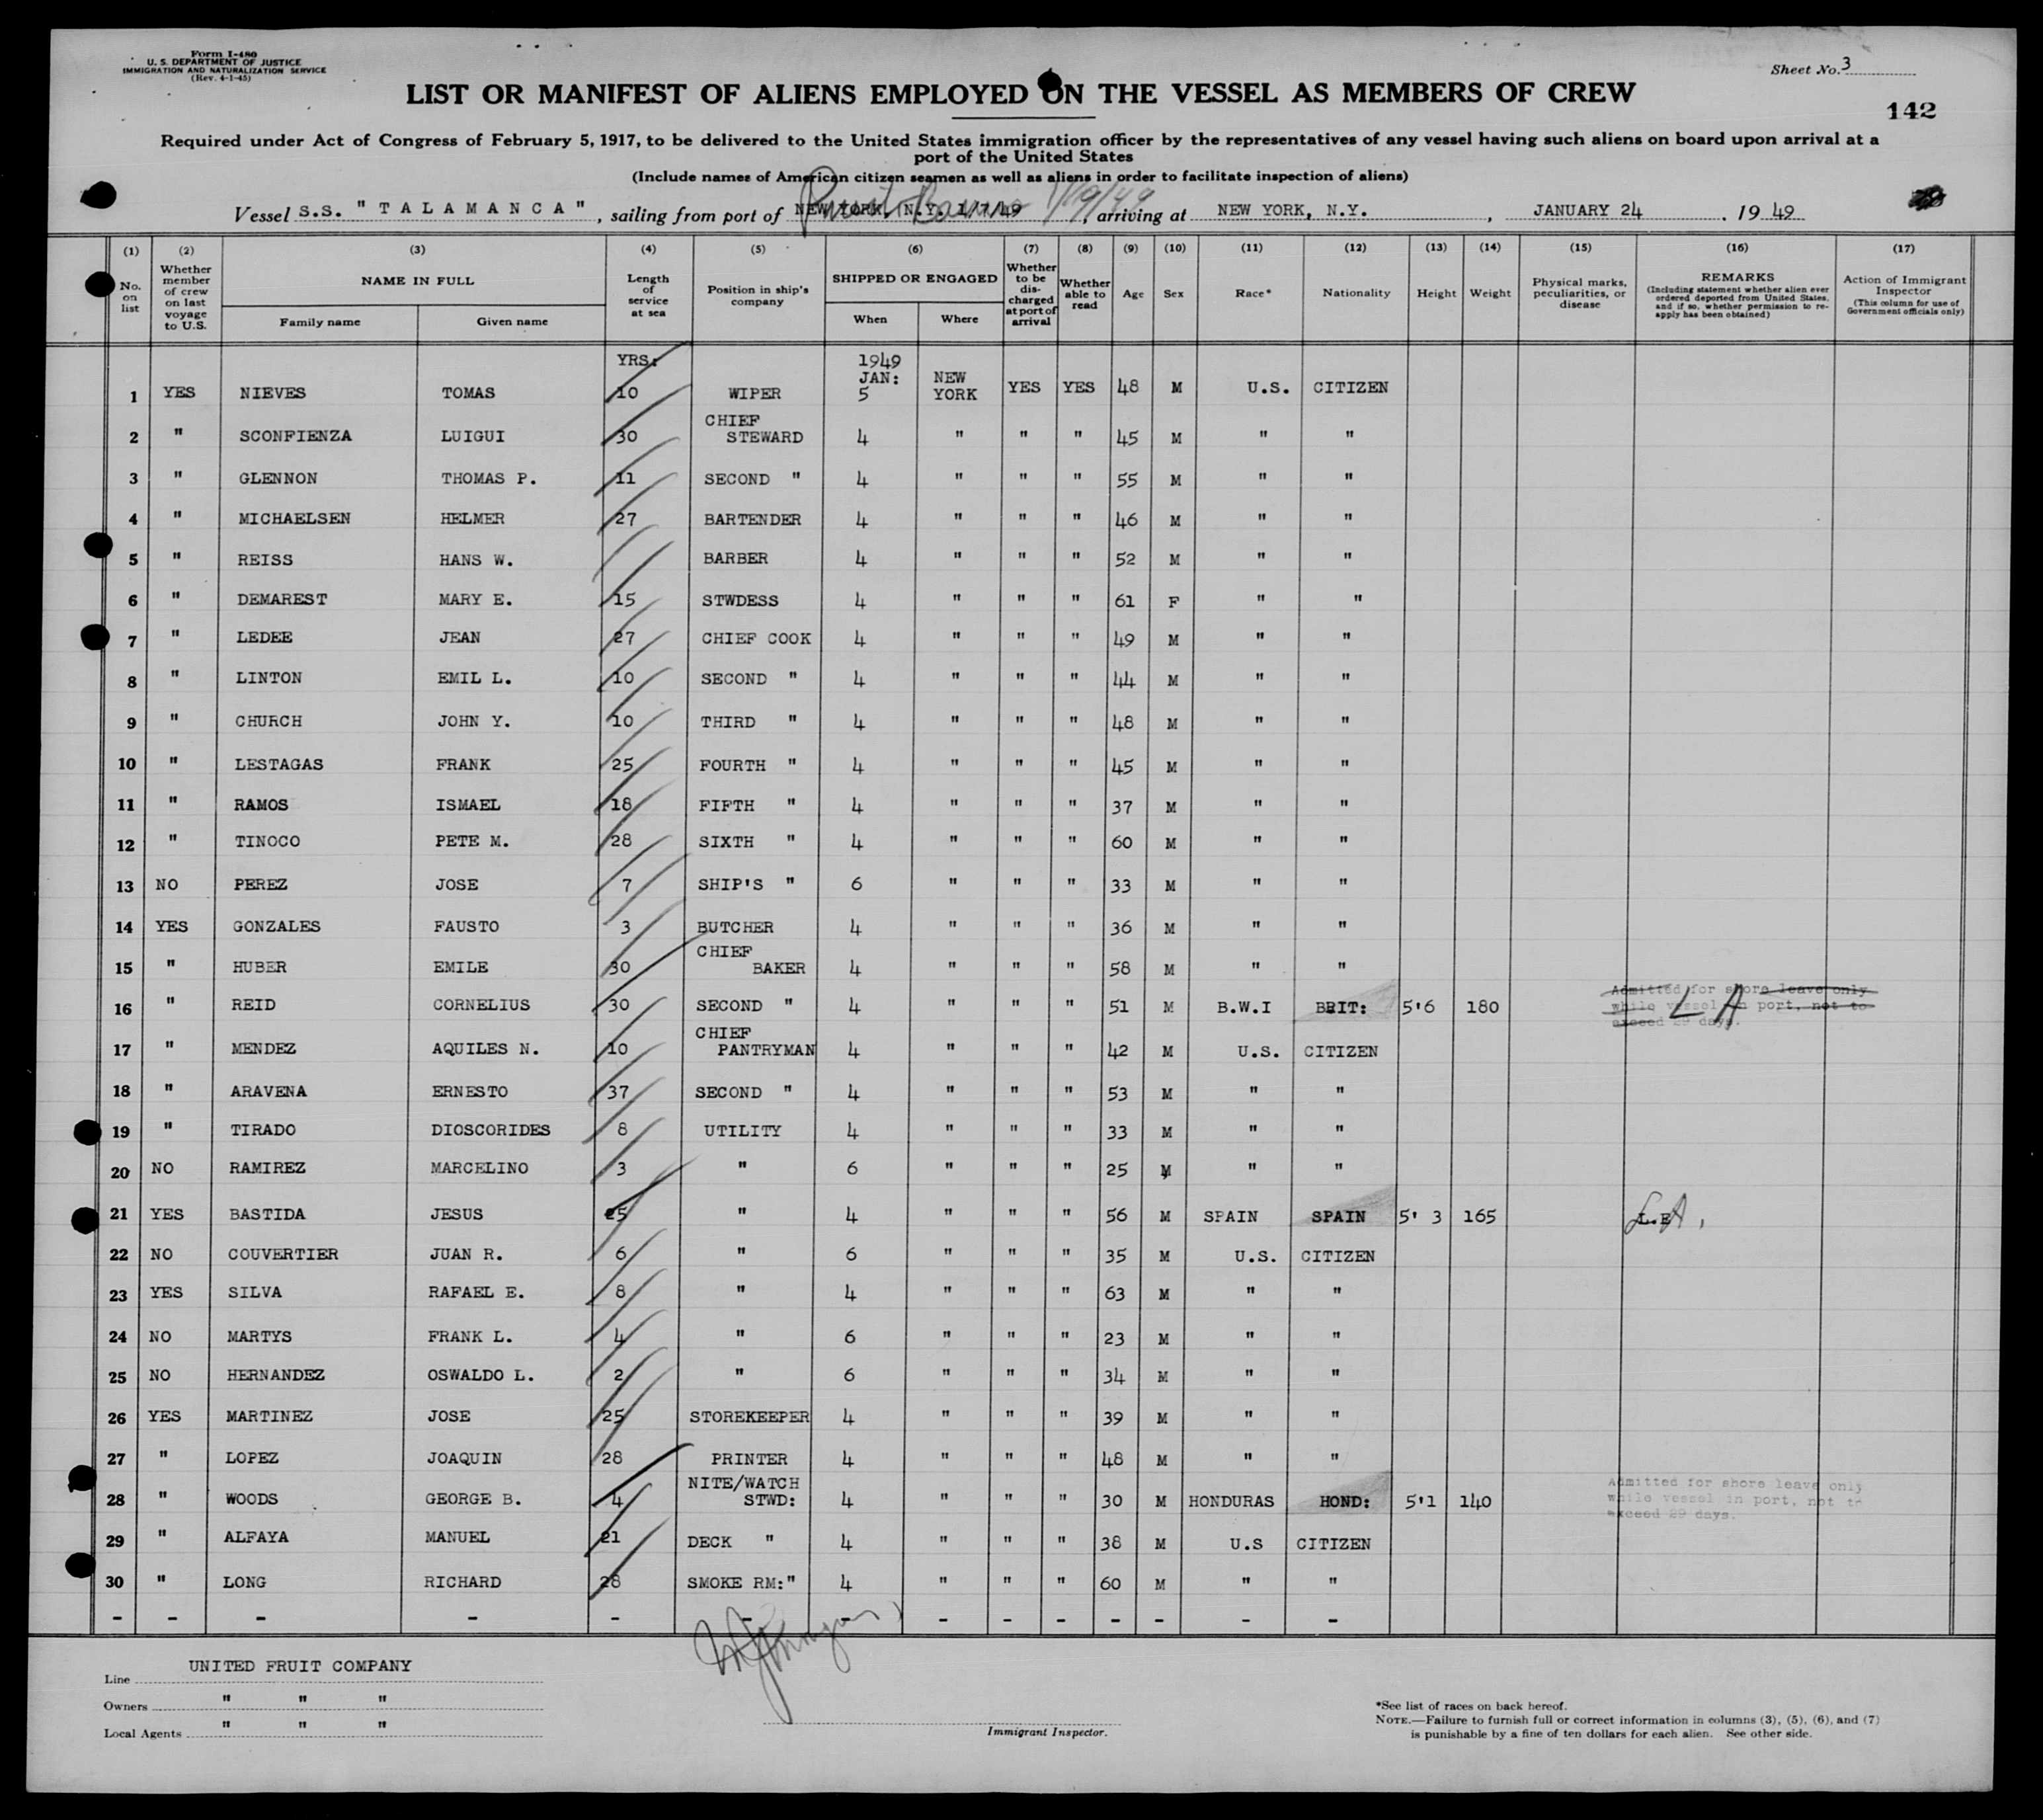 Form I-480
U. S. DEPARTMENT OF JUSTICE
IMMIGRATION AND NATURALIZATION SERVICE
(Rev. 4-1-45)
Sheet No. 3
LIST OR MANIFEST OF ALIENS EMPLOYED ON THE VESSEL AS MEMBERS OF CREW
142
Required under Act of Congress of February 5, 1917, to be delivered to the United States immigration officer by the representatives of any vessel having such aliens on board upon arrival at a
port of the United States
(Include names of American citizen seamen as well as aliens in order to facilitate inspection of aliens)
Vessel S.S. "TALAMANCA", sailing from port of NEW YORK, N.Y. 1/7/49, arriving at NEW YORK, N.Y., JANUARY 24, 1949
(1) (2) (3) (4) (5) (6) (7) (8) (9) (10) (11) (12) (13) (14) (15) (16) (17)
No. on list
Whether member of crew on last voyage to U.S.
NAME IN FULL
Family name Given name
Length of service at sea
Position in ship's company
SHIPPED OR ENGAGED
When Where
Whether to be discharged at port of arrival
Whether able to read
Age
Sex
Race*
Nationality
Height
Weight
Physical marks, peculiarities, or disease
REMARKS
(Including statement whether alien ever ordered deported from United States, and if so, whether permission to re-apply has been obtained)
Action of Immigrant Inspector
(This column for use of Government officials only)
YRS: 1949 JAN:
1 YES NIEVES TOMAS 10 WIPER 5 NEW YORK YES YES 48 M U.S. CITIZEN
2 " SCONFIENZA LUIGUI 30 CHIEF STEWARD 4 " " " 45 M " "
3 " GLENNON THOMAS P. 11 SECOND " 4 " " " 55 M " "
4 " MICHAELSEN HELMER 27 BARTENDER 4 " " " 46 M " "
5 " REISS HANS W. BARBER 4 " " " 52 M " "
6 " DEMAREST MARY E. 15 STWDESS 4 " " " 61 F " "
7 " LEDEE JEAN 27 CHIEF COOK 4 " " " 49 M " "
8 " LINTON EMIL L. 10 SECOND " 4 " " " 44 M " "
9 " CHURCH JOHN Y. 10 THIRD " 4 " " " 48 M " "
10 " LESTAGAS FRANK 25 FOURTH " 4 " " " 45 M " "
11 " RAMOS ISMAEL 18 FIFTH " 4 " " " 37 M " "
12 " TINOCO PETE M. 28 SIXTH " 4 " " " 60 M " "
13 NO PEREZ JOSE 7 SHIP'S " 6 " " " 33 M " "
14 YES GONZALES FAUSTO 3 BUTCHER 4 " " " 36 M " "
15 " HUBER EMILE 30 CHIEF BAKER 4 " " " 58 M " "
16 " REID CORNELIUS 30 SECOND " 4 " " " 51 M B.W.I BRIT: 5'6 180 Admitted for shore leave only while vessel in port, not to exceed 29 days. L A
17 " MENDEZ AQUILES N. 10 CHIEF PANTRYMAN 4 " " " 42 M U.S. CITIZEN
18 " ARAVENA ERNESTO 37 SECOND " 4 " " " 53 M " "
19 " TIRADO DIOSCORIDES 8 UTILITY 4 " " " 33 M " "
20 NO RAMIREZ MARCELINO 3 " 6 " " " 25 M " "
21 YES BASTIDA JESUS 25 " 4 " " " 56 M SPAIN SPAIN 5' 3 165
22 NO COUVERTIER JUAN R. 6 " 6 " " " 35 M U.S. CITIZEN
23 YES SILVA RAFAEL E. 8 " 4 " " " 63 M " "
24 NO MARTYS FRANK L. 4 " 6 " " " 23 M " "
25 NO HERNANDEZ OSWALDO L. 2 " 6 " " " 34 M " "
26 YES MARTINEZ JOSE 25 STOREKEEPER 4 " " " 39 M " "
27 " LOPEZ JOAQUIN 28 PRINTER 4 " " " 48 M " "
28 " WOODS GEORGE B. 4 NITE/WATCH STWD: 4 " " " 30 M HONDURAS HOND: 5'1 140 Admitted for shore leave only while vessel in port, not to exceed 29 days.
29 " ALFAYA MANUEL 21 DECK " 4 " " " 38 M U.S CITIZEN
30 " LONG RICHARD 28 SMOKE RM:" 4 " " " 60 M " "
- - - - - - - - - - - - - -
Line UNITED FRUIT COMPANY
Owners " " "
Local Agents " " "
Immigrant Inspector.
*See list of races on back hereof.
NOTE.—Failure to furnish full or correct information in columns (3), (5), (6), and (7)
is punishable by a fine of ten dollars for each alien. See other side.